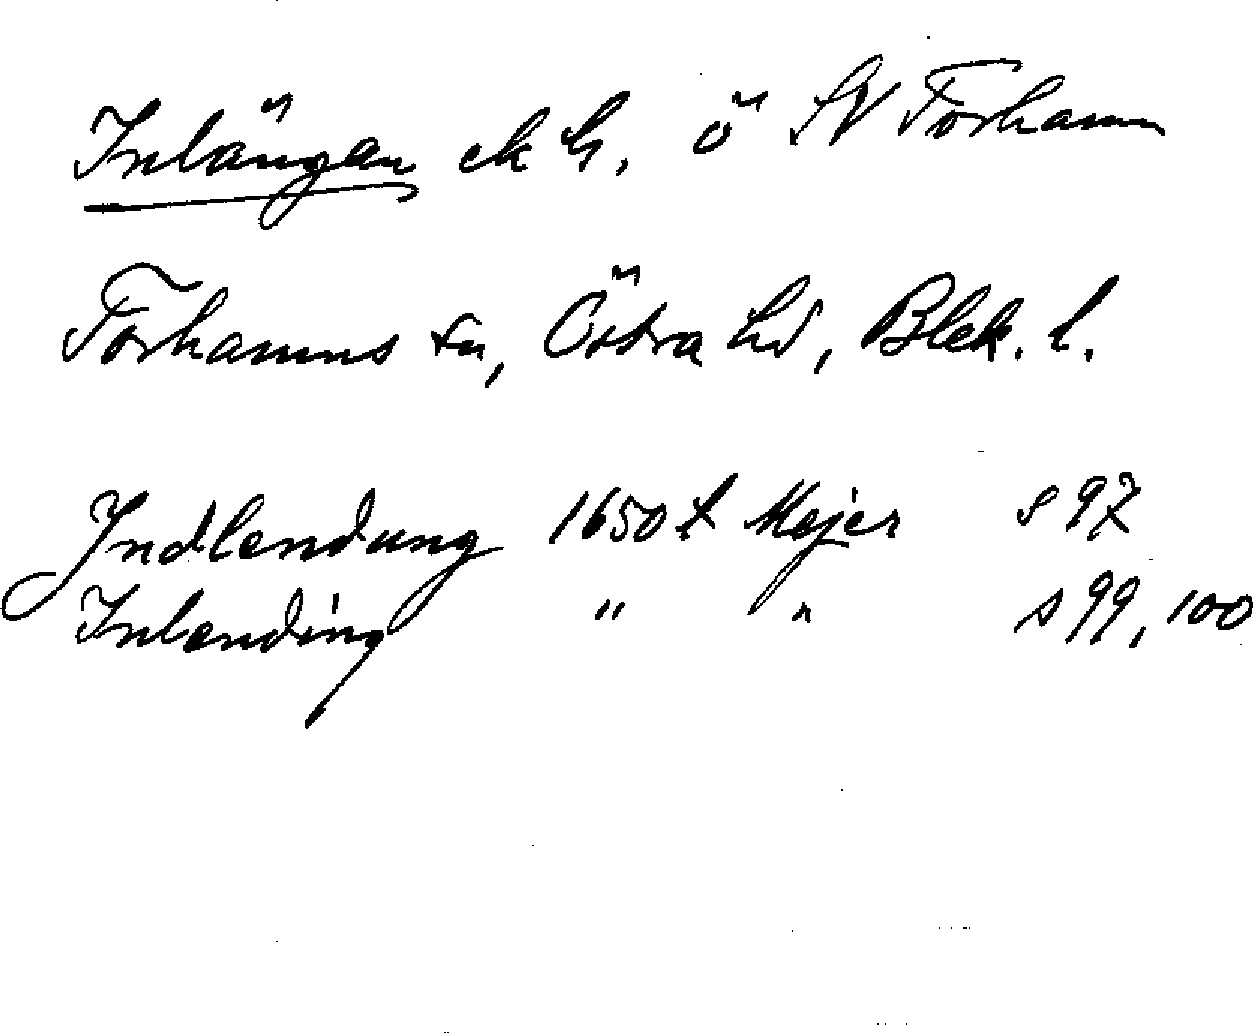 Inlängan ek bl. ö SV Torhamn
Torhamns sn, Östra hd, Blek. l.
Indlendung 1650 t Mejer s 97
Inlending " " s 99, 100